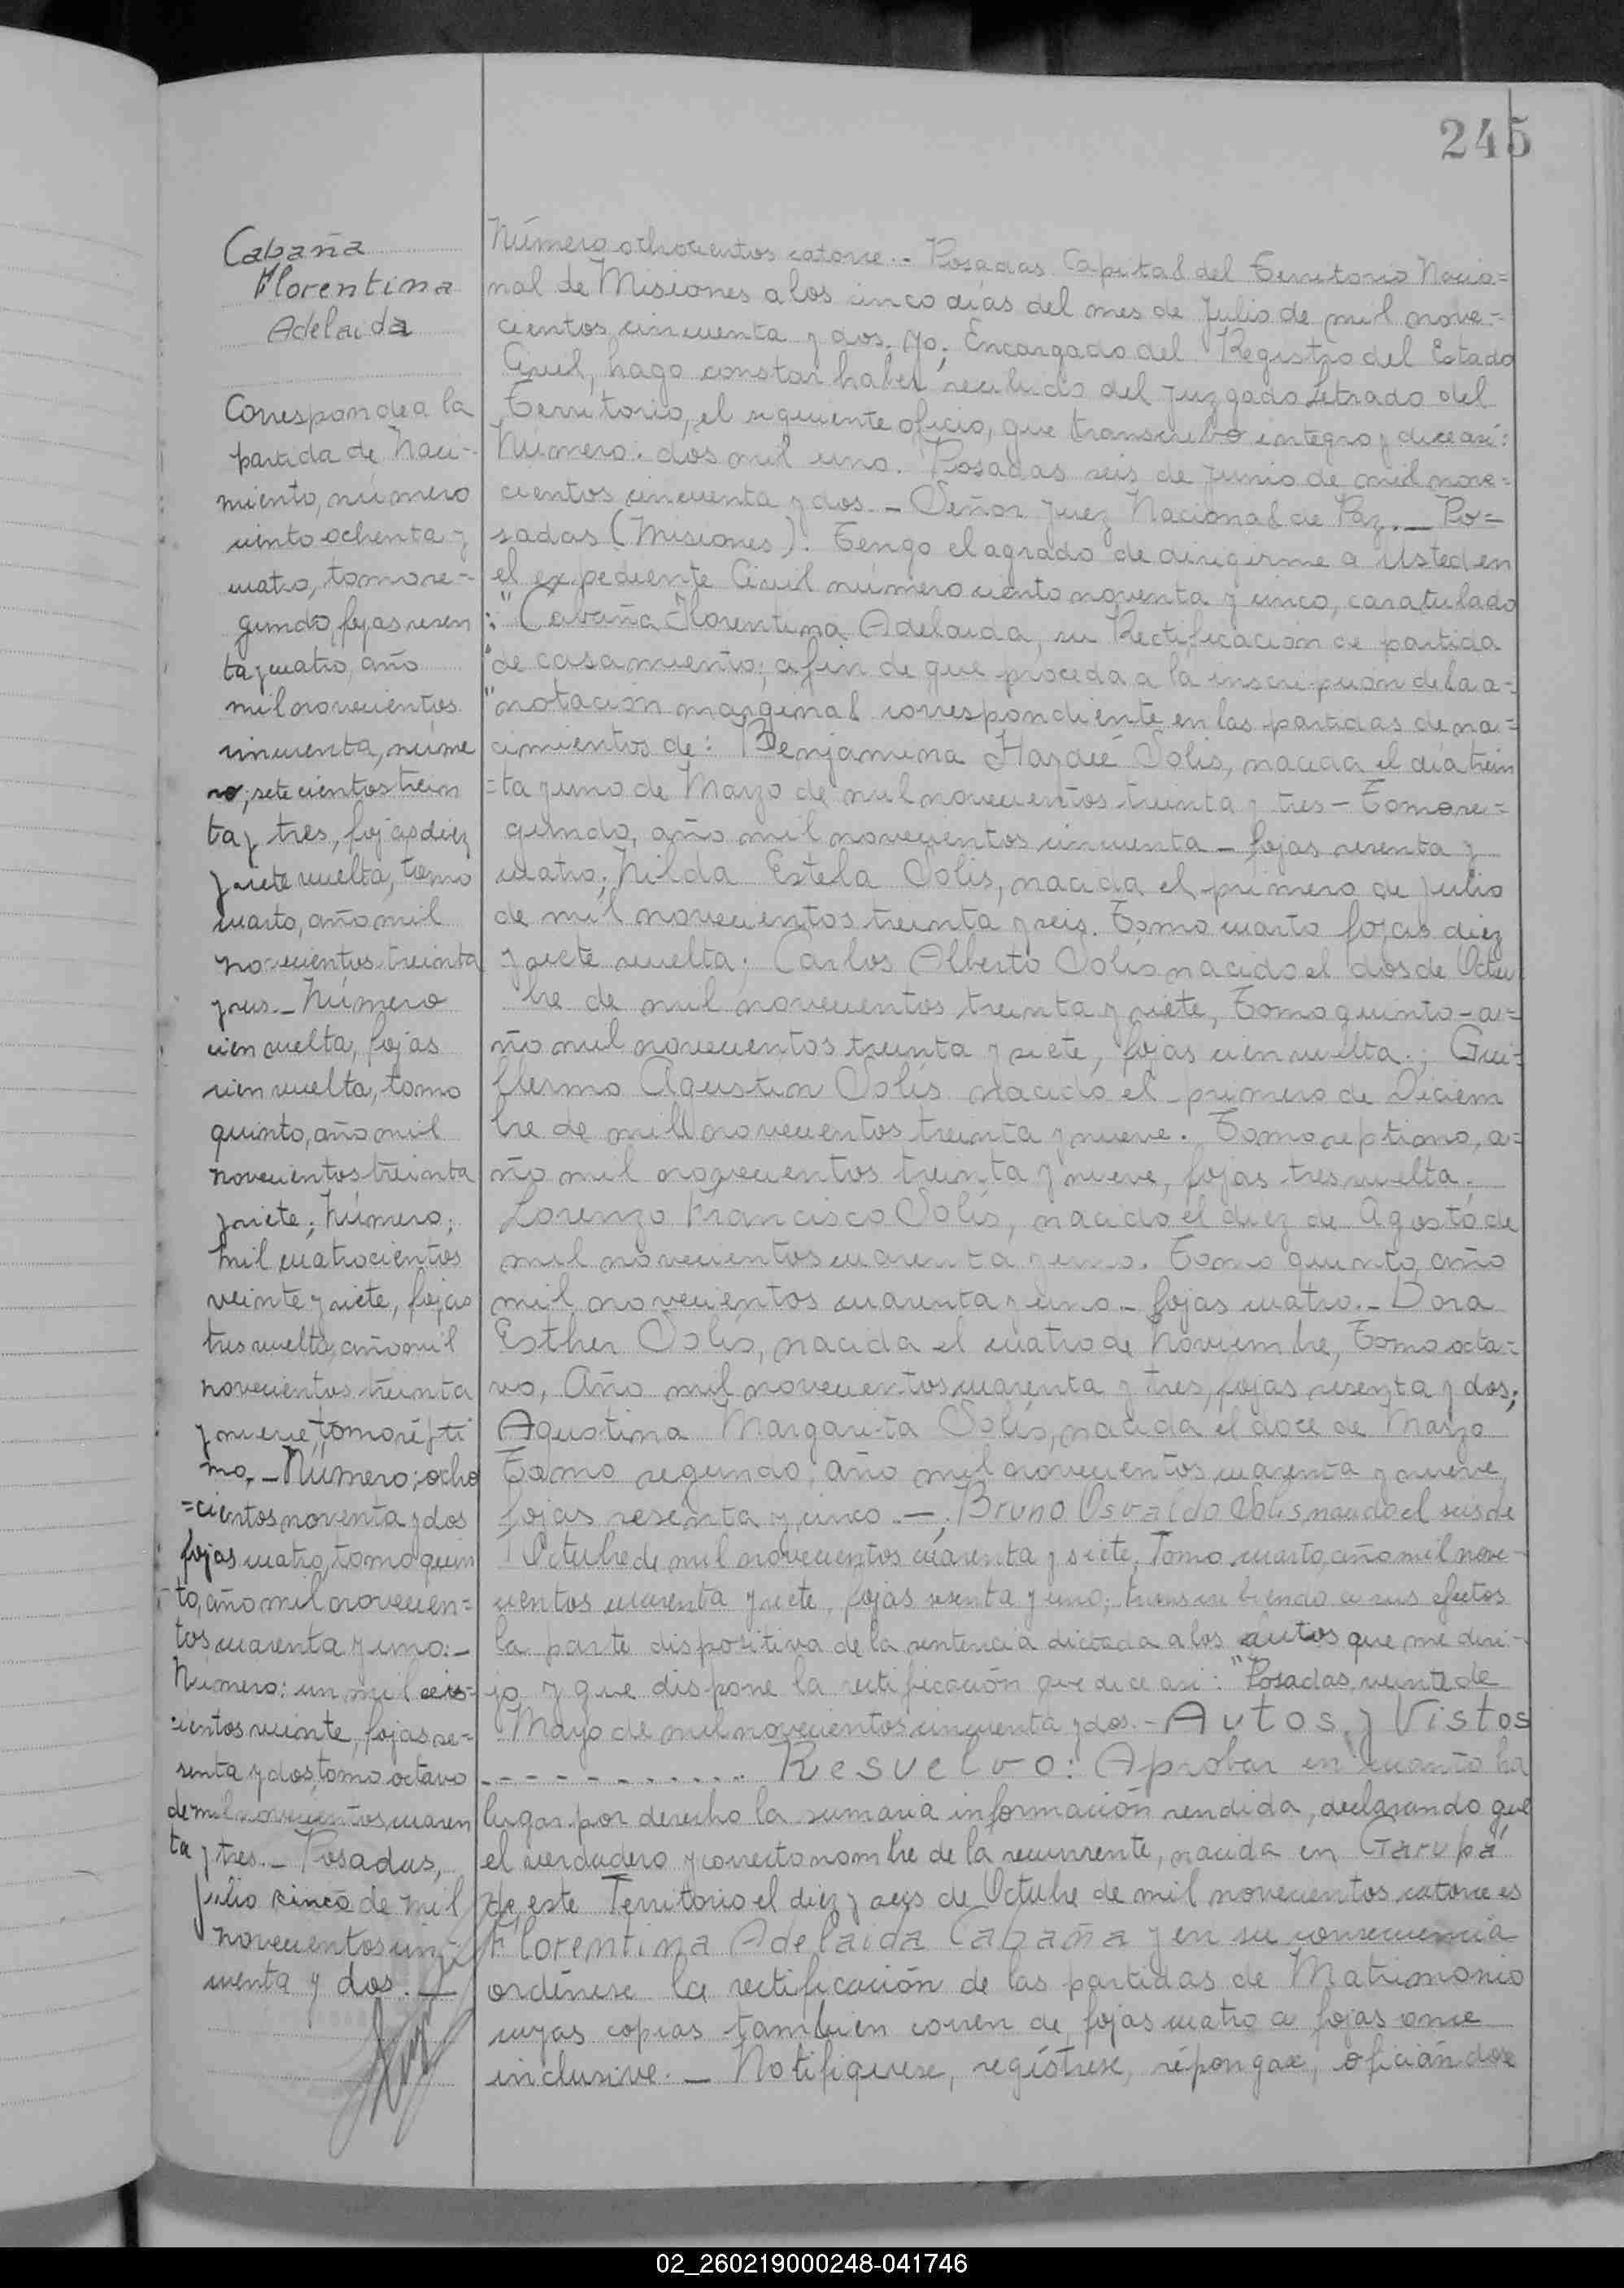 245
Cabaña
Florentina
Adelaida
Corresponde a la
partida de Naci-
miento, número
ciento ochenta y
cuatro, tomo se-
gundo, fojas sesen
ta y cuatro, año
mil novecientos
cincuenta, núme
ro, setecientos trein
ta y tres, fojas diez
y siete vuelta, tomo
cuarto, año mil
novecientos treinta
y seis. - Número
cien vuelta, fojas
cien vuelta, tomo
quinto, año mil
novecientos treinta
y siete; Número;
mil cuatrocientos
veinte y siete, fojas
tres vuelta, año mil
novecientos treinta
y nueve, tomo sépti
mo. - Número; ocho
=cientos noventa y dos
fojas cuatro, tomo quin
to, año mil novecien=
tos cuarenta y uno: -
Número: un mil seis=
cientos veinte, fojas se=
senta y dos, tomo octavo
de mil novecientos cuaren
ta y tres. - Posadas,
julio cinco de mil
novecientos cin-
cuenta y dos. -
Número ochocientos catorce. - Posadas Capital del Territorio Nacio=
nal de Misiones a los cinco días del mes de Julio de mil nove=
cientos cincuenta y dos. Yo, Encargado del Registro del Estado
Civil, hago constar haber recibido del Juzgado Letrado del
Territorio, el siguiente oficio, que transcribo íntegro y dice así:
Número: dos mil uno. Posadas seis de junio de mil nove=
cientos cincuenta y dos. - Señor Juez Nacional de Paz. - Po=
sadas (Misiones). Tengo el agrado de dirigirme a Usted en
el expediente Civil número ciento noventa y cinco, caratulado
: "Cabaña Florentina Adelaida, su Rectificación de partida
"de casamiento; a fin de que proceda a la inscripción de la a=
"notación marginal correspondiente en las partidas de na=
cimientos de: Benjamina Haydée Solis, nacida el día trein
=ta y uno de Marzo de mil novecientos treinta y tres - Tomo se=
gundo, año mil novecientos cincuenta - fojas sesenta y
cuatro; Nilda Estela Solis, nacida el primero de Julio
de mil novecientos treinta y seis. Tomo cuarto fojas diez
y siete vuelta; Carlos Alberto Solis nacido el dos de Octu
bre de mil novecientos treinta y siete, Tomo quinto - a=
ño mil novecientos treinta y siete, fojas cien vuelta; Gui=
llermo Agustin Solis nacido el primero de Diciem
bre de mil novecientos treinta y nueve. Tomo septimo, a=
ño mil novecientos treinta y nueve, fojas tres vuelta;
Lorenzo Francisco Solis, nacido el diez de Agosto de
mil novecientos cuarenta y uno. Tomo quinto, año
mil novecientos cuarenta y uno - fojas cuatro. - Dora
Esther Solis, nacida el cuatro de Noviembre, Tomo octa=
vo, Año mil novecientos cuarenta y tres, fojas sesenta y dos;
Agustina Margarita Solis, nacida el doce de Marzo
Tomo segundo, año mil novecientos cuarenta y nueve,
fojas sesenta y cinco. -; Bruno Osvaldo Solis, nacido el seis de
Octubre de mil novecientos cuarenta y siete, Tomo cuarto, año mil nove-
cientos cuarenta y siete, fojas sesenta y uno; transcribiendo a sus efectos
la parte dispositiva de la sentencia dictada a los autos que me diri-
jo y que dispone la rectificación que dice así: "Posadas, veinte de
Mayo de mil novecientos cincuenta y dos. - Autos y Vistos
- - - - - - - - - - - Resuelvo: Aprobar en cuanto ha
lugar por derecho la sumaria información rendida, declarando que
el verdadero y correcto nombre de la recurrente, nacida en Garupá
de este Territorio el diez y seis de Octubre de mil novecientos catorce es
Florentina Adelaida Cabaña y en su consecuencia
ordénese la rectificación de las partidas de Matrimonio
cuyas copias tambien corren de fojas cuatro a fojas once
inclusive. - Notifiquese, regístrese, répongase, oficiándose
02_260219000248-041746